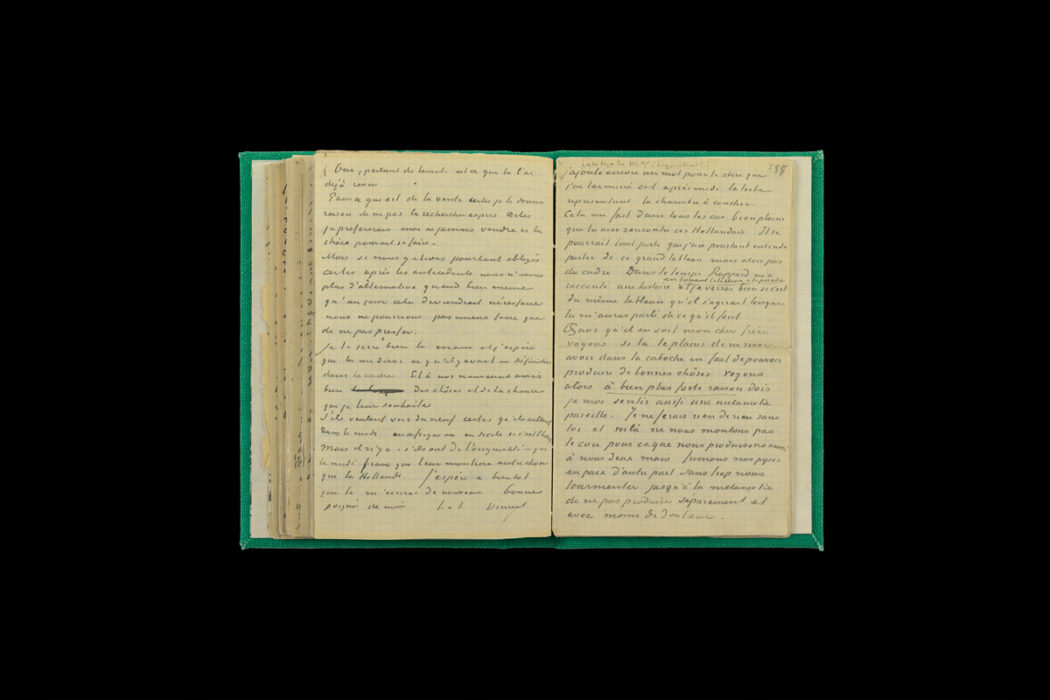 Oui, parlant de Seurat est ce que tu l'as
déjà revu
Pour ce qui est de la vente certes je te donne
raison de ne pas la rechercher exprès certes
je préférerais moi ne jamais vendre si la
chôse pouvait se faire.
Mais si nous y étions pourtant obligés
certes après les antecedents nous n'avons
plus d'alternative quand bien meme
qu'un jour cela deviendrait nécessaire
nous ne pourrions pas mieux faire que
de ne pas presser.
Je te serre bien la main et j'espère
que tu me diras ce qu'il y avait en définitive
dans le cadre Et à nos nouveaux amis
bien des chôses et de la chance
que je leur souhaite
S'ils veulent voir du neuf certes qu'ils aillent
dans le midi en afrique ou en Sicile si c'est l'hiver
Mais s'ils ont de l'originalité – que
le midi leur montrera autre chose
que la Hollande. J'espère a bientot
que tu m'ecriras de nouveau bonne
poignée de main t. à t. Vincent
58
j'ajoute encore un mot pour te dire que
j'ai terminé cet après midi la toile
représentant la chambre à coucher.
Cela me fait dans tous les cas bien plaisir
que tu aies rencontré ces Hollandais. Il se
pourrait tout juste que j'aie pourtant entendu
parler de ce grand tableau mais alors pas
du cadre Dans le temps Rappard m'a
raconté une histoire en louant et je verrai bien si c'est
du même tableau qu'il s'agirait lorsque
tu m'auras parlé de ce qu'il font
Quoi qu'il en soit mon cher frère
voyons si tu te plains de ne rien
avoir dans la caboche en fait de pouvoir
produire de bonnes chôses voyons
alors à bien plus forte raison dois
je moi sentir aussi une melancolie
pareille. Je ne ferais rien de rien sans
toi et voilà ne nous montons pas
le cou pour ce que nous produisons ainsi
à nous deux mais fumons nos pipes
en paix d'autre part sans trop nous
tourmenter jusqu'à la mélancolie
de ne pas produire separement et
avec moins de douleur.